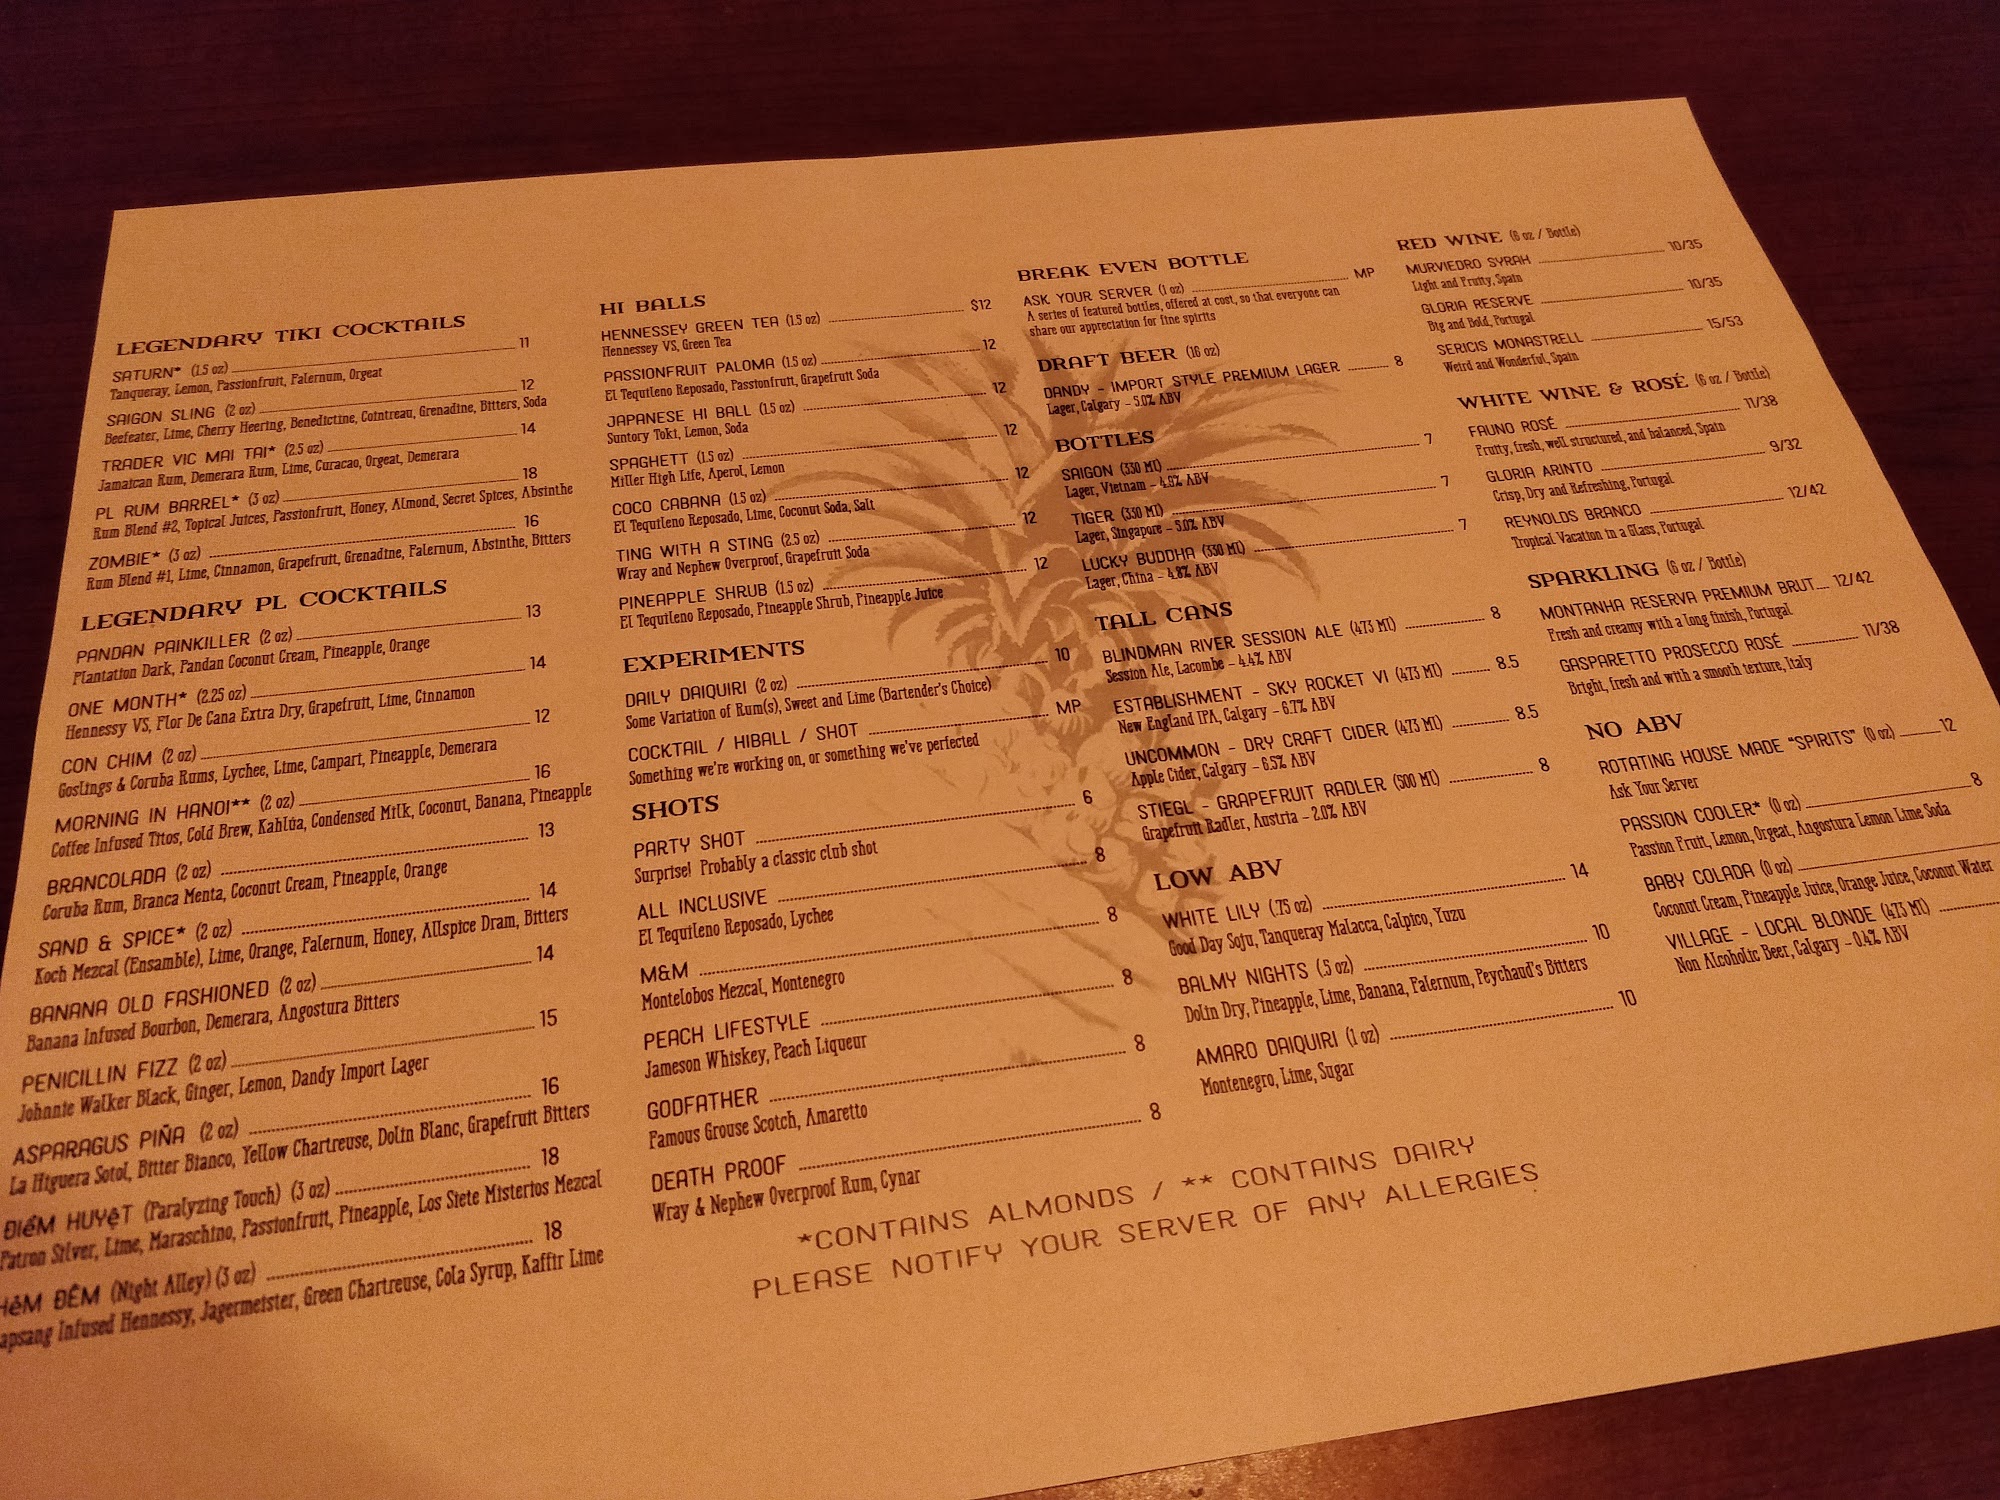 LEGENDARY TIKI COCKTAILS
SATURN* (1.5 oz) 11
Tanqueray, Lemon, Passionfruit, Falernum, Orgeat
SAIGON SLING (2 oz) 12
Beefeater, Lime, Cherry Heering, Benedictine, Cointreau, Grenadine, Bitters, Soda
TRADER VIC MAI TAI* (2.5 oz) 14
Jamaican Rum, Demerara Rum, Lime, Curacao, Orgeat, Demerara
PL RUM BARREL* (3 oz) 18
Rum Blend #2, Topical Juices, Passionfruit, Honey, Almond, Secret Spices, Absinthe
ZOMBIE* (3 oz) 16
Rum Blend #1, Lime, Cinnamon, Grapefruit, Grenadine, Falernum, Absinthe, Bitters
LEGENDARY PL COCKTAILS
PANDAN PAINKILLER (2 oz) 13
Plantation Dark, Pandan Coconut Cream, Pineapple, Orange
ONE MONTH* (2.25 oz) 14
Hennessy VS, Flor De Cana Extra Dry, Grapefruit, Lime, Cinnamon
CON CHIM (2 oz) 12
Goslings & Coruba Rums, Lychee, Lime, Campari, Pineapple, Demerara
MORNING IN HANOI** (2 oz) 16
Coffee Infused Titos, Cold Brew, Kahlúa, Condensed Milk, Coconut, Banana, Pineapple
BRANCOLADA (2 oz) 13
Coruba Rum, Branca Menta, Coconut Cream, Pineapple, Orange
SAND & SPICE* (2 oz) 14
Koch Mezcal (Ensamble), Lime, Orange, Falernum, Honey, Allspice Dram, Bitters
BANANA OLD FASHIONED (2 oz) 14
Banana Infused Bourbon, Demerara, Angostura Bitters
PENICILLIN FIZZ (2 oz) 15
Johnnie Walker Black, Ginger, Lemon, Dandy Import Lager
ASPARAGUS PIÑA (2 oz) 16
La Higuera Sotol, Bitter Bianco, Yellow Chartreuse, Dolin Blanc, Grapefruit Bitters
ĐIỂM HUYỆT (Paralyzing Touch) (3 oz) 18
Patron Silver, Lime, Maraschino, Passionfruit, Pineapple, Los Siete Misterios Mezcal
HẺM ĐÊM (Night Alley) (3 oz) 18
apsang Infused Hennessy, Jagermeister, Green Chartreuse, Cola Syrup, Kaffir Lime
HI BALLS
HENNESSEY GREEN TEA (1.5 oz) $12
Hennessey VS, Green Tea
PASSIONFRUIT PALOMA (1.5 oz) 12
El Tequileno Reposado, Passionfruit, Grapefruit Soda
JAPANESE HI BALL (1.5 oz) 12
Suntory Toki, Lemon, Soda
SPAGHETT (1.5 oz) 12
Miller High Life, Aperol, Lemon
COCO CABANA (1.5 oz) 12
El Tequileno Reposado, Lime, Coconut Soda, Salt
TING WITH A STING (2.5 oz) 12
Wray and Nephew Overproof, Grapefruit Soda
PINEAPPLE SHRUB (1.5 oz) 12
El Tequileno Reposado, Pineapple Shrub, Pineapple Juice
EXPERIMENTS
DAILY DAIQUIRI (2 oz) 10
Some Variation of Rum(s), Sweet and Lime (Bartender's Choice)
COCKTAIL / HIBALL / SHOT MP
Something we're working on, or something we've perfected
SHOTS
PARTY SHOT 6
Surprise! Probably a classic club shot
ALL INCLUSIVE 8
El Tequileno Reposado, Lychee
M&M 8
Montelobos Mezcal, Montenegro
PEACH LIFESTYLE 8
Jameson Whiskey, Peach Liqueur
GODFATHER 8
Famous Grouse Scotch, Amaretto
DEATH PROOF 8
Wray & Nephew Overproof Rum, Cynar
BREAK EVEN BOTTLE
ASK YOUR SERVER (1 oz) MP
A series of featured bottles, offered at cost, so that everyone can
share our appreciation for fine spirits
DRAFT BEER (16 oz)
DANDY - IMPORT STYLE PREMIUM LAGER 8
Lager, Calgary - 5.0% ABV
BOTTLES
SAIGON (330 Ml) 7
Lager, Vietnam - 4.9% ABV
TIGER (330 Ml) 7
Lager, Singapore - 5.0% ABV
LUCKY BUDDHA (330 Ml) 7
Lager, China - 4.8% ABV
TALL CANS
BLINDMAN RIVER SESSION ALE (473 Ml) 8
Session Ale, Lacombe - 4.4% ABV
ESTABLISHMENT - SKY ROCKET VI (473 Ml) 8.5
New England IPA, Calgary - 6.7% ABV
UNCOMMON - DRY CRAFT CIDER (473 Ml) 8.5
Apple Cider, Calgary - 6.5% ABV
STIEGL - GRAPEFRUIT RADLER (500 Ml) 8
Grapefruit Radler, Austria - 2.0% ABV
LOW ABV
WHITE LILY (.75 oz) 14
Good Day Soju, Tanqueray Malacca, Calpico, Yuzu
BALMY NIGHTS (.5 oz) 10
Dolin Dry, Pineapple, Lime, Banana, Falernum, Peychaud's Bitters
AMARO DAIQUIRI (1 oz) 10
Montenegro, Lime, Sugar
RED WINE (6 oz / Bottle)
MURVIEDRO SYRAH 10/35
Light and Fruity, Spain
GLORIA RESERVE 10/35
Big and Bold, Portugal
SERICIS MONASTRELL 15/53
Weird and Wonderful, Spain
WHITE WINE & ROSÉ (6 oz / Bottle)
FAUNO ROSÉ 11/38
Fruity, fresh, well structured, and balanced, Spain
GLORIA ARINTO 9/32
Crisp, Dry and Refreshing, Portugal
REYNOLDS BRANCO 12/42
Tropical Vacation in a Glass, Portugal
SPARKLING (6 oz / Bottle)
MONTANHA RESERVA PREMIUM BRUT 12/42
Fresh and creamy with a long finish, Portugal
GASPARETTO PROSECCO ROSÉ 11/38
Bright, fresh and with a smooth texture, Italy
NO ABV
ROTATING HOUSE MADE "SPIRITS" (0 oz) 12
Ask Your Server
PASSION COOLER* (0 oz) 8
Passion Fruit, Lemon, Orgeat, Angostura Lemon Lime Soda
BABY COLADA (0 oz)
Coconut Cream, Pineapple Juice, Orange Juice, Coconut Water
VILLAGE - LOCAL BLONDE (473 Ml)
Non Alcoholic Beer, Calgary - 0.4% ABV
*CONTAINS ALMONDS / ** CONTAINS DAIRY
PLEASE NOTIFY YOUR SERVER OF ANY ALLERGIES